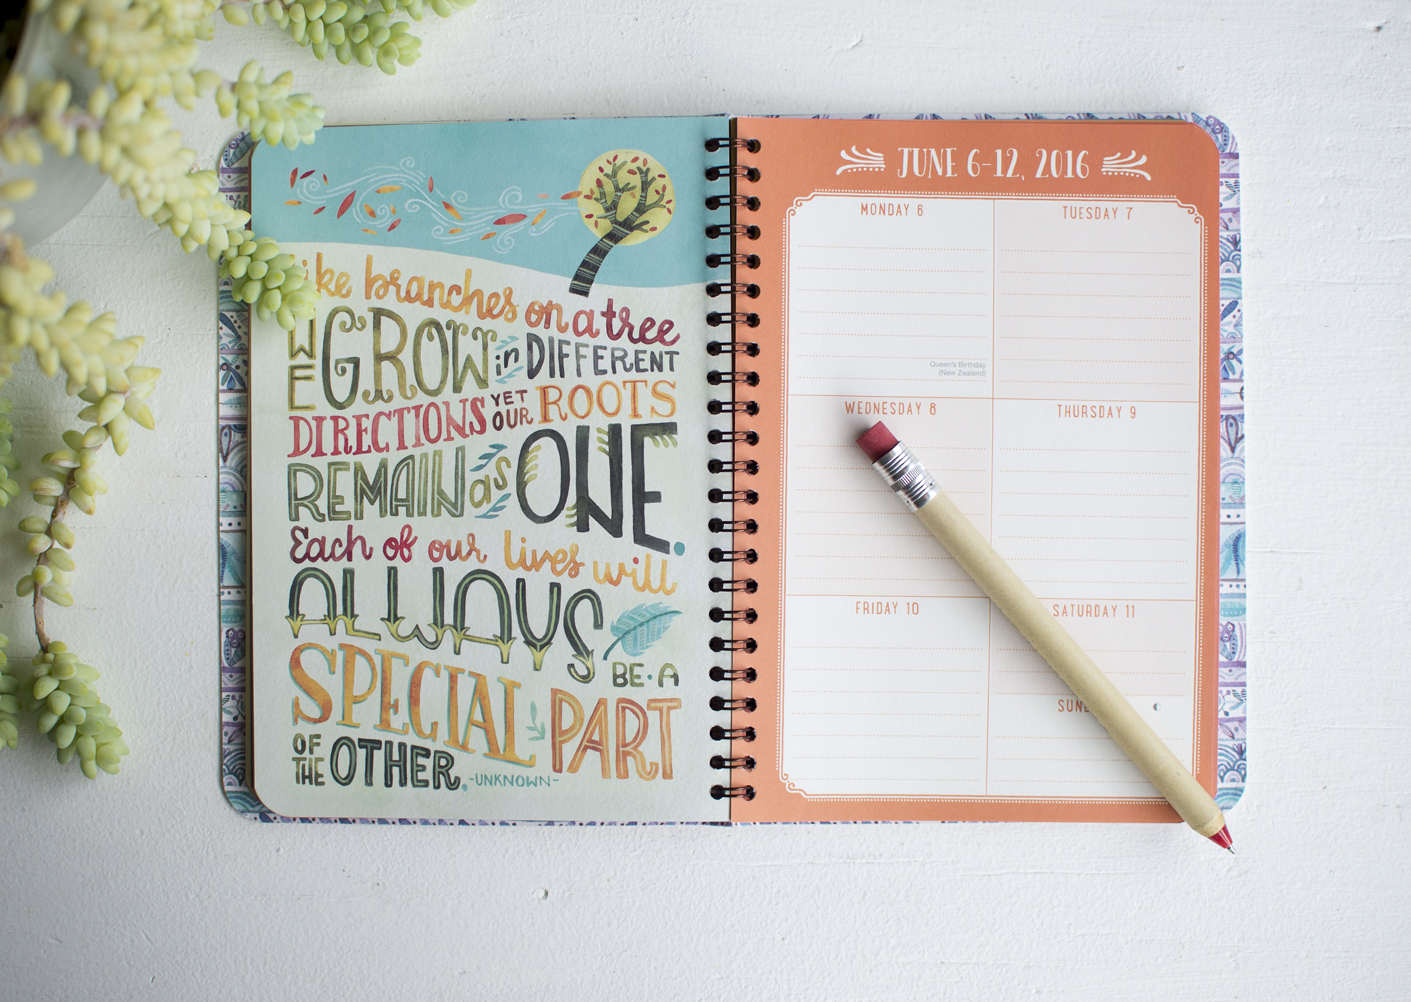 ike branches on a tree
WE GROW in DIFFERENT
DIRECTIONS YET OUR ROOTS
REMAIN as ONE.
Each of our lives will
ALWAYS
BE · A
SPECIAL PART
OF THE OTHER.
-UNKNOWN-
JUNE 6-12, 2016
MONDAY 6
TUESDAY 7
Queen's Birthday
(New Zealand)
WEDNESDAY 8
THURSDAY 9
FRIDAY 10
SATURDAY 11
SUN